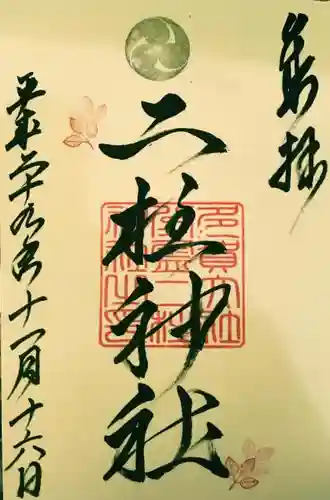 奉拝
二柱神社
平成二十九年十一月十六日